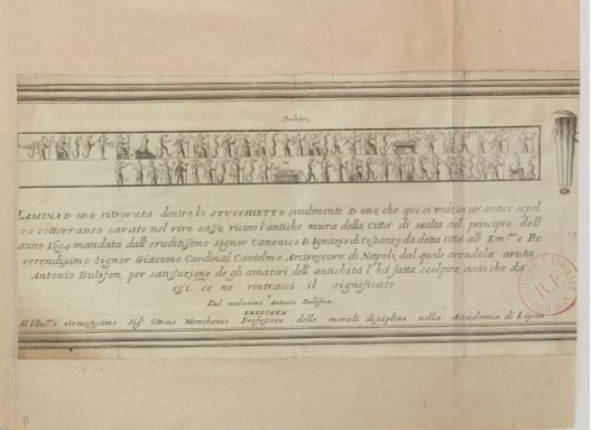 Bulifon
LAMINA D oro ritrovata dentro lo STUCCHIETTO similmente D oro, che qui si vede, in un' antico sepol
cro sotterraneo cavato nel vivo sasso vicino l'antiche mura della Città di Malta nel principio dell'
anno 1694 mandata dall' eruditissimo Signor Canonico D Ignazio di Costanzo da detta Città all' Em.mo e Re:
verendissimo Signor Giacomo Cardinal Cantelmo Arcivescovo di Napoli, dal quale avendola avuta
Antonio Bulifon, per satisfazione de gli amatori dell' antichità l' hà fatta scolpire, acciò che da
essi se ne rintracci il significato
Dal medesimo Antonio Bulifon
DEDICATA
Al Illus.mo e virtuosissimo Sig.r Ottone Menchenio Professore delle morali discipline nella Accademia di Lipsia